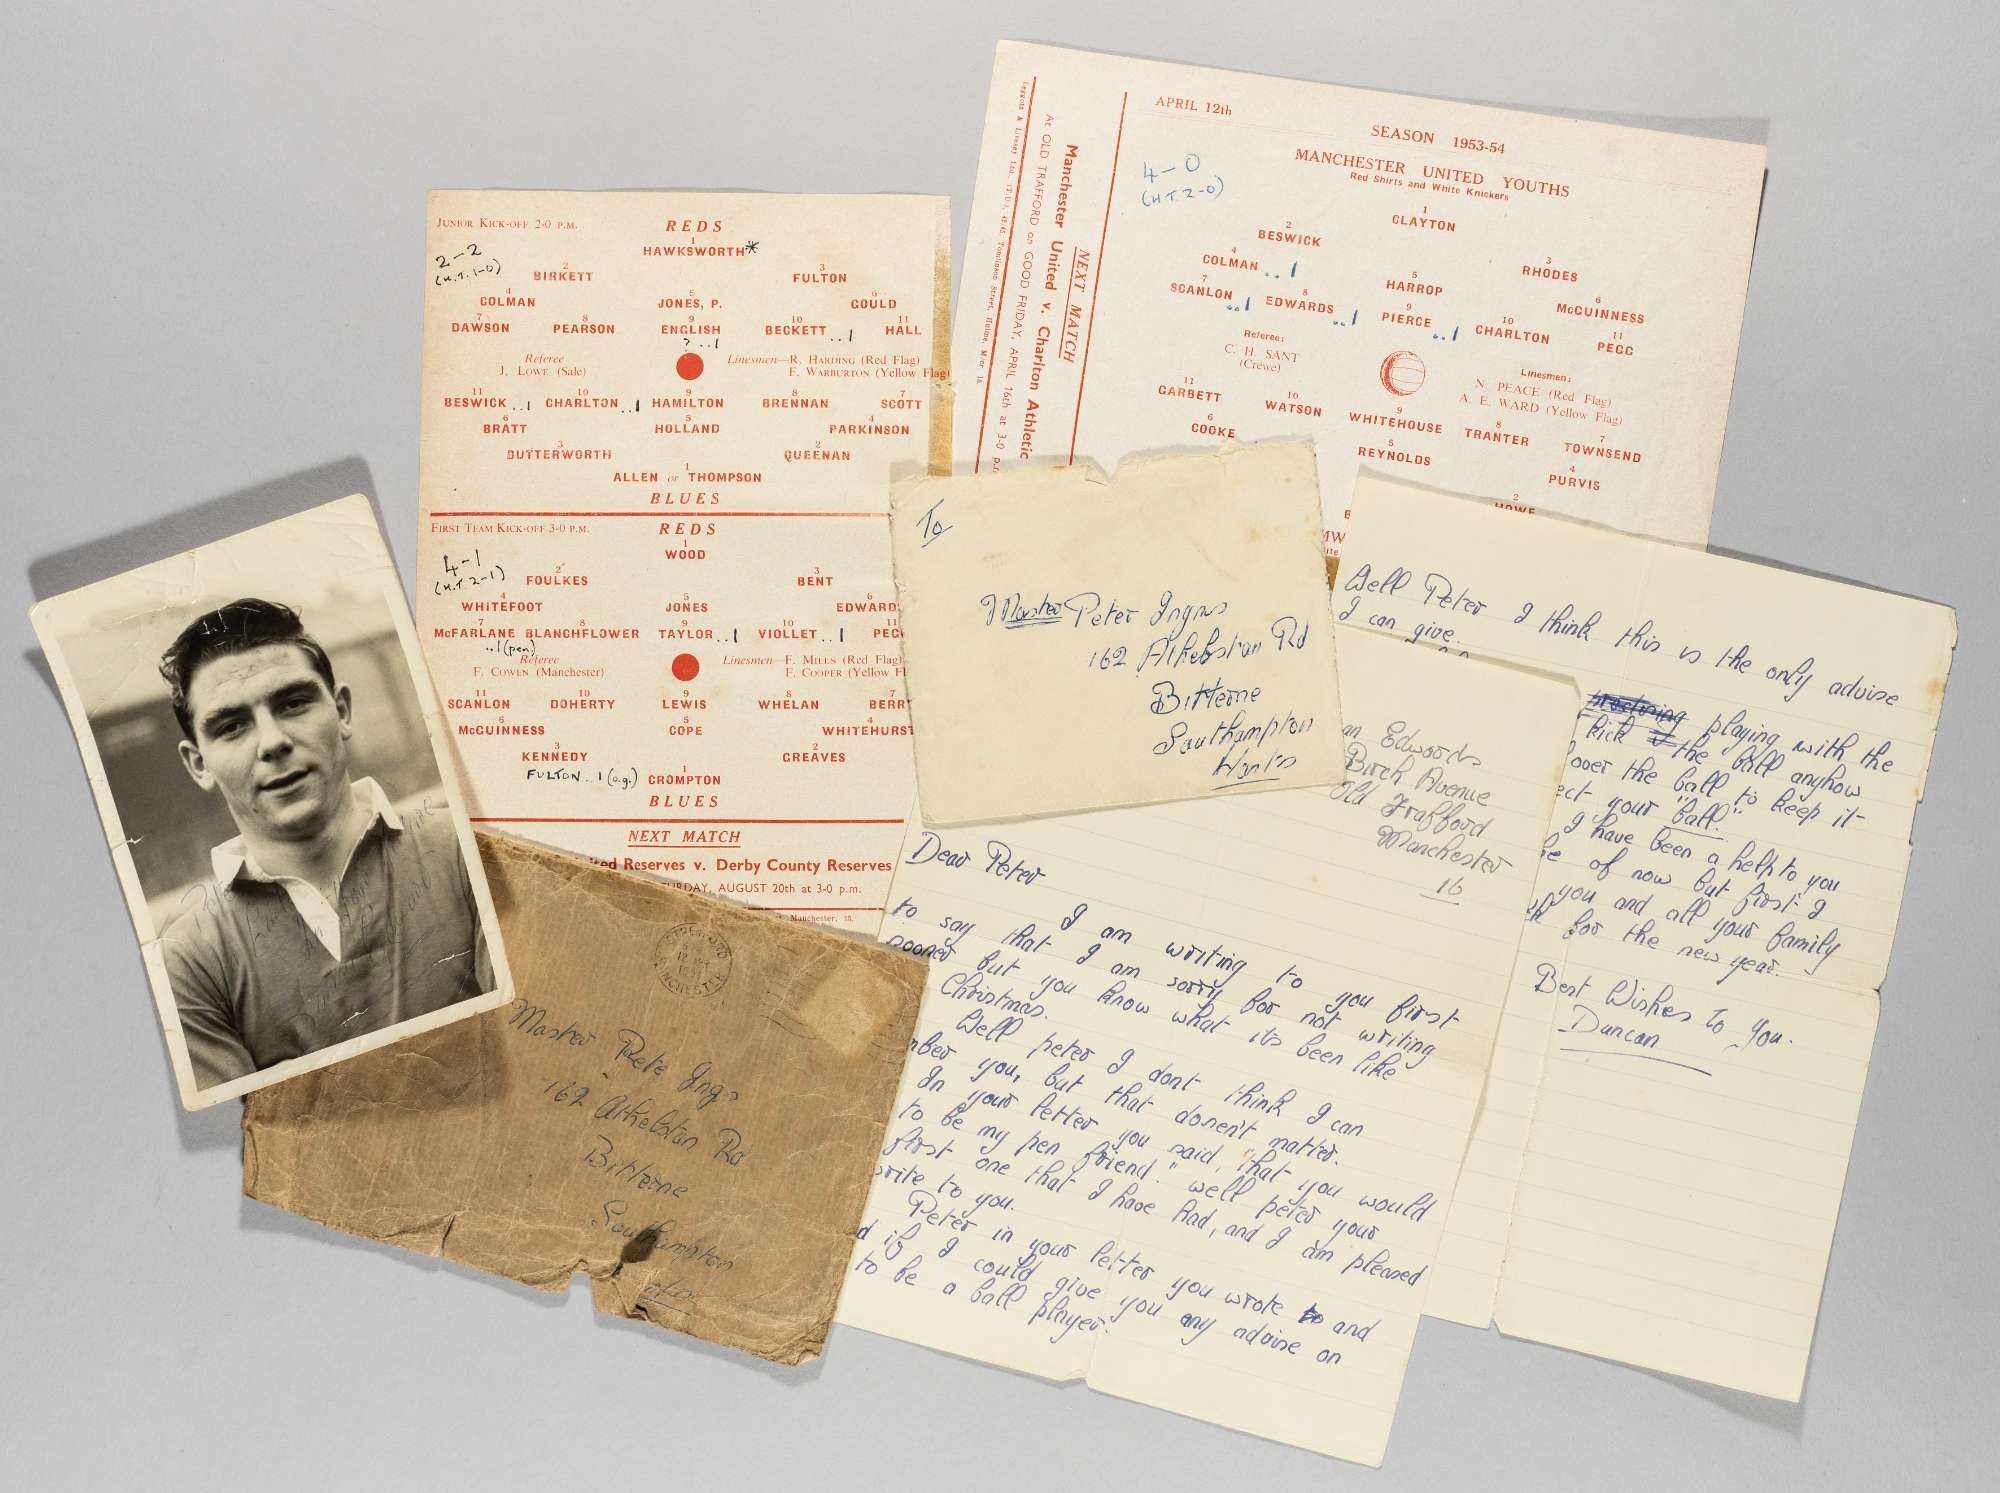 JUNIOR KICK-OFF 2-0 P.M.
REDS
2-2
(H.T. 1-0)
1
HAWKSWORTH*
2 3
BIRKETT FULTON
4 5 6
COLMAN JONES, P. GOULD
7 8 9 10 11
DAWSON PEARSON ENGLISH BECKETT..1 HALL
?..1
Referee
J. LOWE (Sale)
Linesmen—R. HARDING (Red Flag)
F. WARBURTON (Yellow Flag)
11 10 9 8 7
BESWICK..1 CHARLTON..1 HAMILTON BRENNAN SCOTT
6 5 4
BRATT HOLLAND PARKINSON
3 2
BUTTERWORTH QUEENAN
1
ALLEN or THOMPSON
BLUES
FIRST TEAM KICK-OFF 3-0 P.M.
REDS
4-1
(H.T. 2-1)
1
WOOD
2 3
FOULKES BENT
4 5 6
WHITEFOOT JONES EDWARDS
7 8 9 10
McFARLANE BLANCHFLOWER TAYLOR..1 VIOLLET..1 PEG
..1 (pen)
Referee
F. COWEN (Manchester)
Linesmen—F. MILLS (Red Flag)
F. COOPER (Yellow Fl
11 10 9 8 7
SCANLON DOHERTY LEWIS WHELAN BERRY
6 5 4
McGUINNESS COPE WHITEHURST
3 2
KENNEDY GREAVES
FULTON..1 (o.g.)
1
CROMPTON
BLUES
NEXT MATCH
ited Reserves v. Derby County Reserves
URDAY, AUGUST 20th at 3-0 p.m.
Manchester, 15.
APRIL 12th
SEASON 1953-54
MANCHESTER UNITED YOUTHS
Red Shirts and White Knickers
4-0
(H.T. 2-0)
1
CLAYTON
2 3
BESWICK RHODES
4 5 6
COLMAN..1 HARROP McGUINNESS
7 8 9 10 11
SCANLON..1 EDWARDS..1 PIERCE..1 CHARLTON PEGG
Referee:
C. H. SANT
(Crewe)
Linesmen:
N. PEACE (Red Flag)
A. E. WARD (Yellow Flag)
11 10 9 8 7
GARBETT WATSON WHITEHOUSE TRANTER TOWNSEND
6 5 4
COOKE REYNOLDS PURVIS
2
HOWE
NEXT MATCH
Manchester United v. Charlton Athletic
At OLD TRAFFORD on GOOD FRIDAY, APRIL 16th at 3-0 p.m.
To
Master Peter Ings
162 Athelstan Rd
Bitterne
Southampton
Hants
Master Pete Ings
162 Athelstan Rd
Bitterne
Southampton
STRETFORD
MANCHESTER
an Edwards
Birch Avenue
Old Trafford
Manchester
16
Dear Peter
I am writing to you first
to say that I am sorry for not writing
sooner but you know what its been like
Christmas.
Well peter I dont think I can
mber you, but that dosen't matter.
In your letter you said, "that you would
to be my pen friend." well peter your
first one that I have had, and I am pleased
write to you.
Peter in your letter you wrote to and
d if I could give you any advise on
to be a ball player.
Well Peter I think this is the only advise
I can give.
playing with the
kick the ball anyhow
over the ball to keep it
ect your "ball."
I have been a help to you
be of now but first I
you and all your family
for the new year.
Best Wishes To You.
Duncan